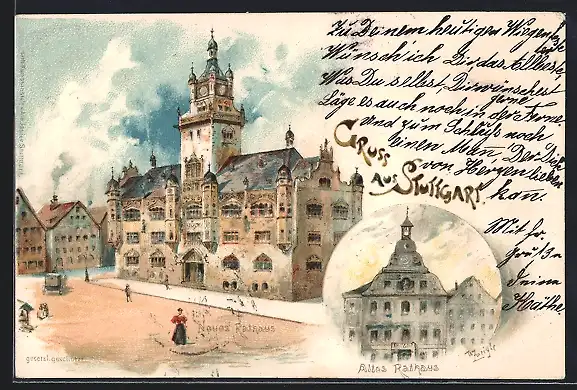 Zu Deinem heutigen Wiegenfeste
Wünsch ich Dir das Allerbeste,
Was Du selbst Dir wünschest
gerne
Läge es auch noch in der Ferne.
und zum Schluß noch
einen Mann, Der Dich
von Herzen lieben
kan.
Gruss
aus Stuttgart.
Mit hr.
Grüßen
Deine
Käthe
Neues Rathaus
gesetzl. geschützt
Altes Rathaus